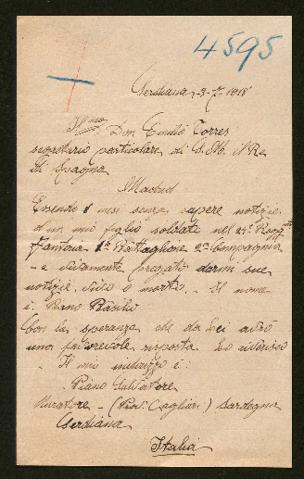 4595
Serdiana, 3-7-1918
Ill.mo Don Emilio Torres
segretario particolare di S. M. il Re
di Spagna
Madrid
Essendo mesi senza sapere notizie
d'un mio figlio soldato nel Regg.
fanteria Battaglione 2a Compagnia
e vivamente pregato darmi sue
notizie, vivo o morto. - Il nome
è: Piano Basilio
Con la speranza che da Lei avrò
una favorevole risposta La riverisco
Il mio indirizzo è:
Piano Salvatore
Muratore - (Prov. Cagliari) Sardegna
Serdiana
Italia